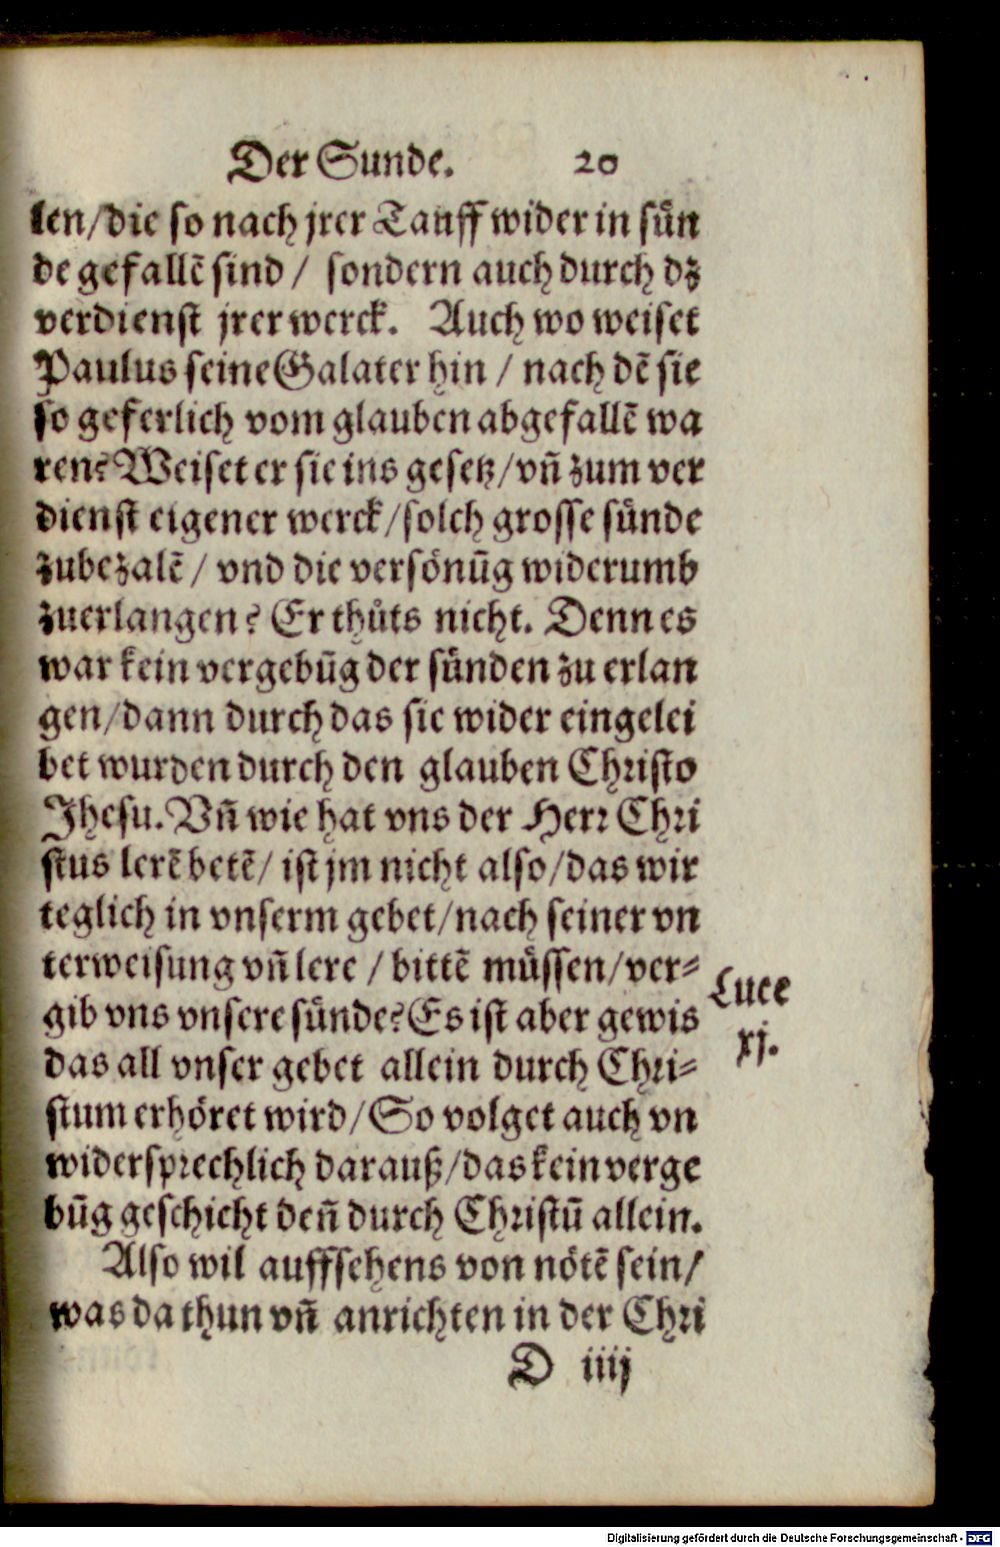 Der Sunde. 20
len/die so nach jrer Tauff wider in sün
de gefallẽ sind / sondern auch durch dz
verdienst jrer werck. Auch wo weiset
Paulus seine Galater hin / nach dẽ sie
so geferlich vom glauben abgefallẽ wa
ren? Weiset er sie ins gesetz/vñ zum ver
dienst eigener werck/solch grosse sünde
zubezalẽ / vnd die versönũg widerumb
zuerlangen? Er thůts nicht. Denn es
war kein vergebũg der sünden zu erlan
gen/dann durch das sie wider eingelei
bet wurden durch den glauben Christo
Jhesu. Vñ wie hat vns der Herr Chri
stus lerẽ betẽ/ ist jm nicht also/das wir
teglich in vnserm gebet/nach seiner vn
terweisung vñ lere / bittẽ müssen/ver⸗
gib vns vnsere sünde? Es ist aber gewis
Luce
xj.
das all vnser gebet allein durch Chri⸗
stum erhöret wird/So volget auch vn
widersprechlich darauß/das kein verge
bũg geschicht deñ durch Christũ allein.
Also wil auffsehens von nötẽ sein/
was da thun vñ anrichten in der Chri
D iiij
Digitalisierung gefördert durch die Deutsche Forschungsgemeinschaft - DFG